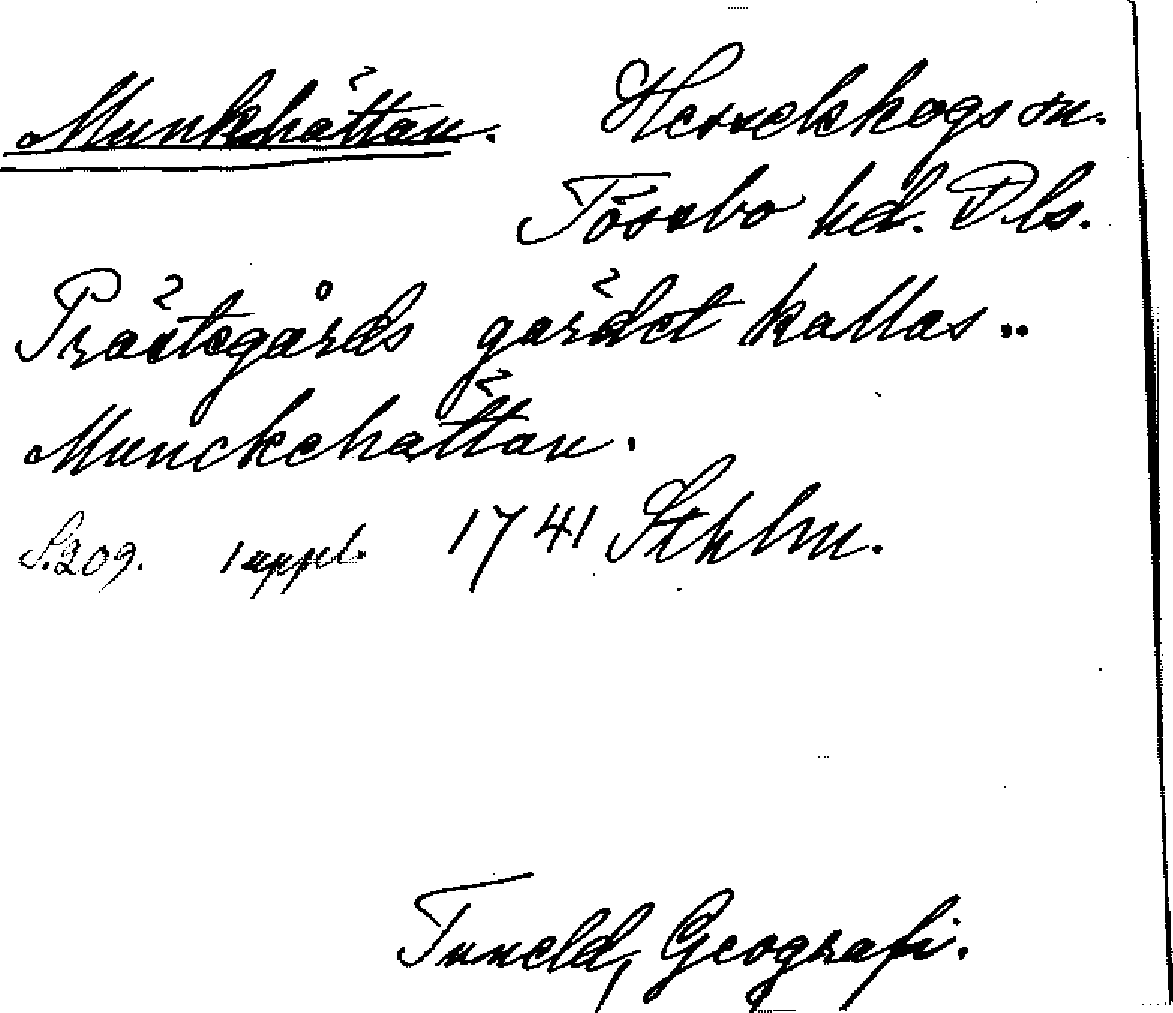 Munkhättan. Hesselskogs sn.
Tössbo hd. Dls.
Prästegårds gärdet kallas..
Munckehättan.
S.209. 1 uppl. 1741 Sthlm.
Tuneld, Geografi.